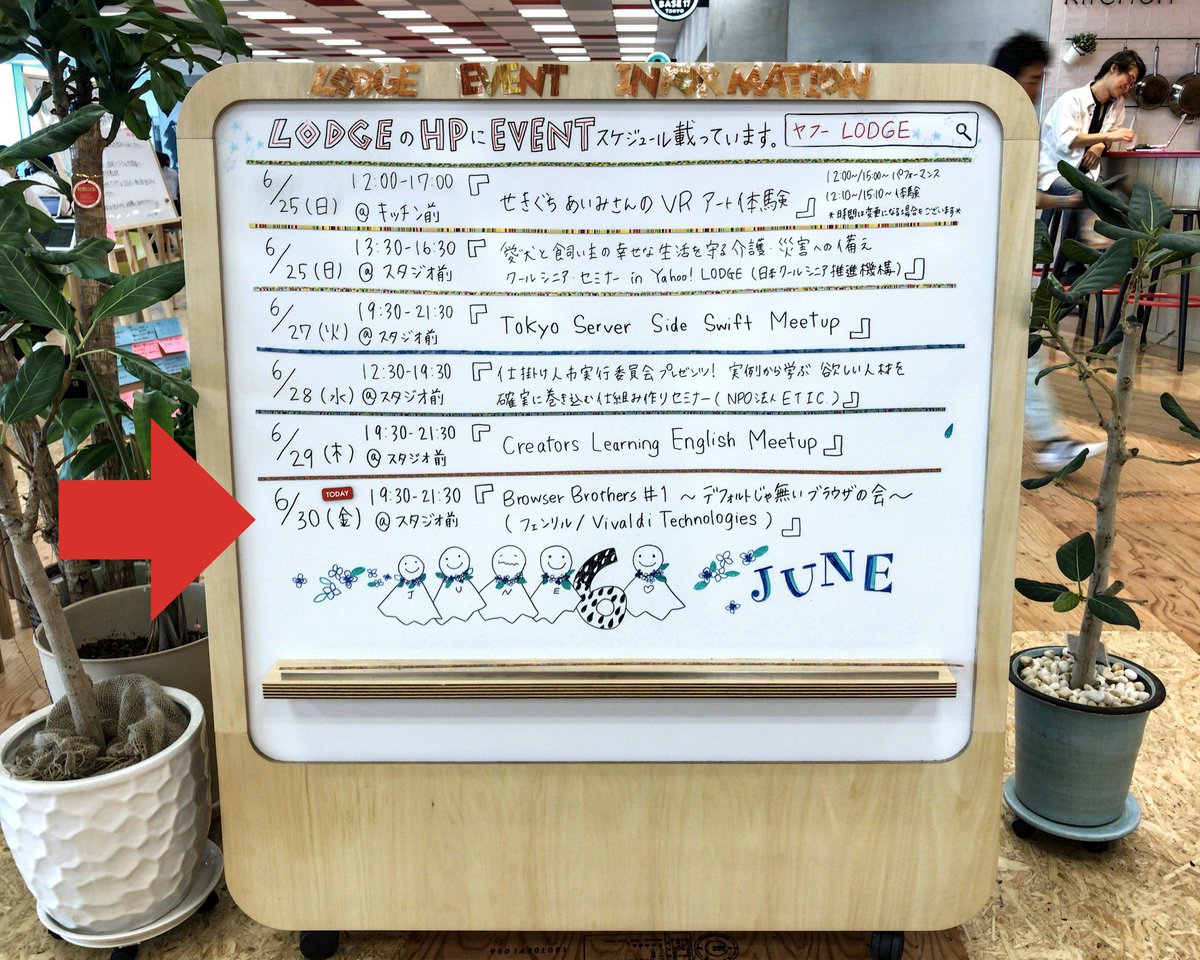 BASE 17
TOKYO
KITCHEN
LODGE EVENT INFORMATION
LODGEのHPにEVENTスケジュール載っています。 ヤフー LODGE
6/25(日) 12:00-17:00 @キッチン前 『せきぐちあいみさんのVRアート体験』 12:00~/15:00~ パフォーマンス
12:10~/15:10~ 体験
*時間は変更になる場合もございます*
6/25(日) 13:30-16:30 @スタジオ前 『愛犬と飼い主の幸せな生活を守る介護・災害への備え
クールシニア セミナー in Yahoo! LODGE (日本クールシニア推進機構)』
6/27(火) 19:30-21:30 @スタジオ前 『Tokyo Server Side Swift Meetup』
6/28(水) 12:30-19:30 @スタジオ前 『仕掛け人市実行委員会プレゼンツ! 実例から学ぶ 欲しい人材を
確実に巻き込む仕組み作りセミナー(NPO法人ETIC.)』
6/29(木) 19:30-21:30 @スタジオ前 『Creators Learning English Meetup』
6/30(金) TODAY 19:30-21:30 @スタジオ前 『Browser Brothers #1 ~デフォルトじゃ無いブラウザの会~
(フェンリル/Vivaldi Technologies)』
J U N E 6 JUNE